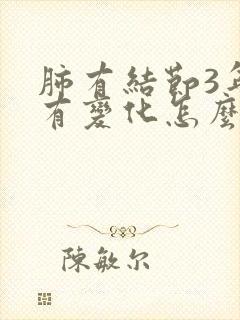 肺有結節3年
有變化怎麼
陳敏尔